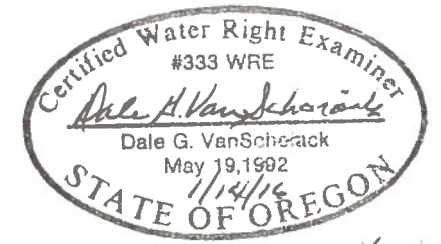 Certified Water Right Examiner
#333 WRE
Dale G. VanSchoiack
May 19,1992
1/14/16
STATE OF OREGON